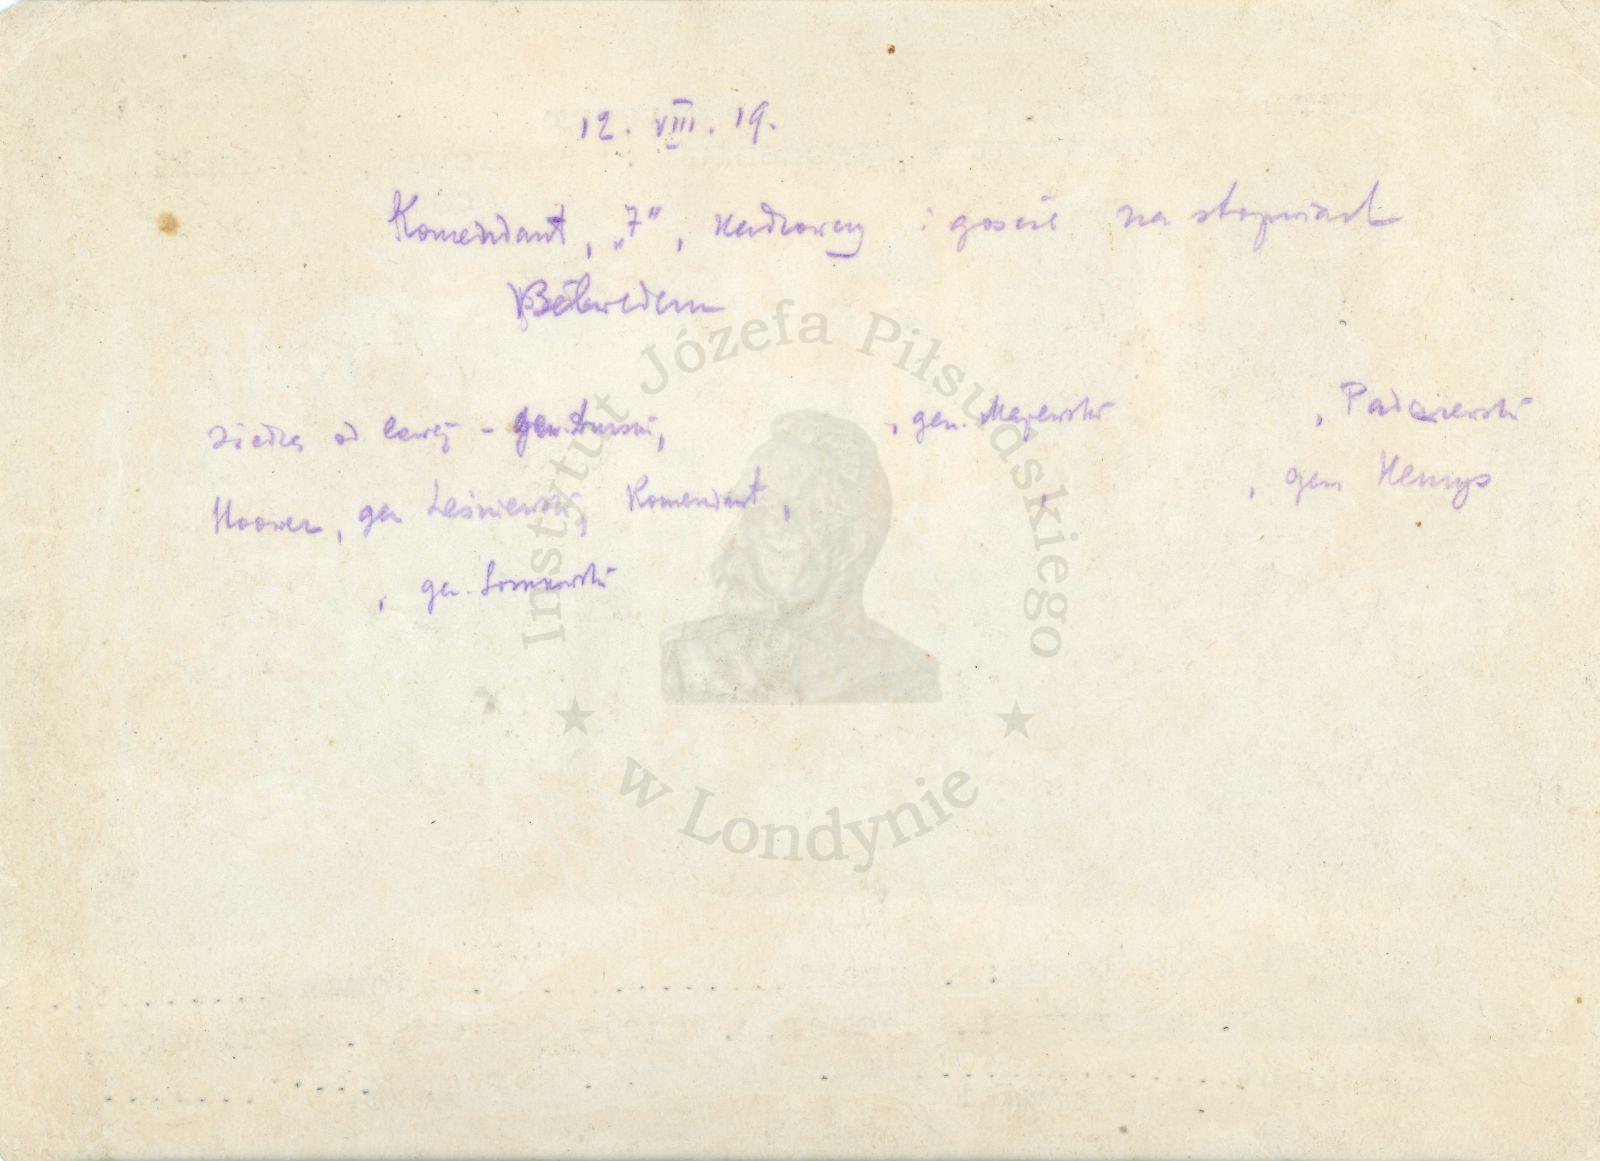 12. VIII. 19.
Komendant, „7", i goście na stopniach
Belwederu
siedzą od lewej - gen.
, gen. Majewski
, Paderewski
Hoover, gen Leśniewski, Komendant,
,
, gen Henrys
, gen. Sosnkowski
Instytut Józefa Piłsudskiego
w Londynie